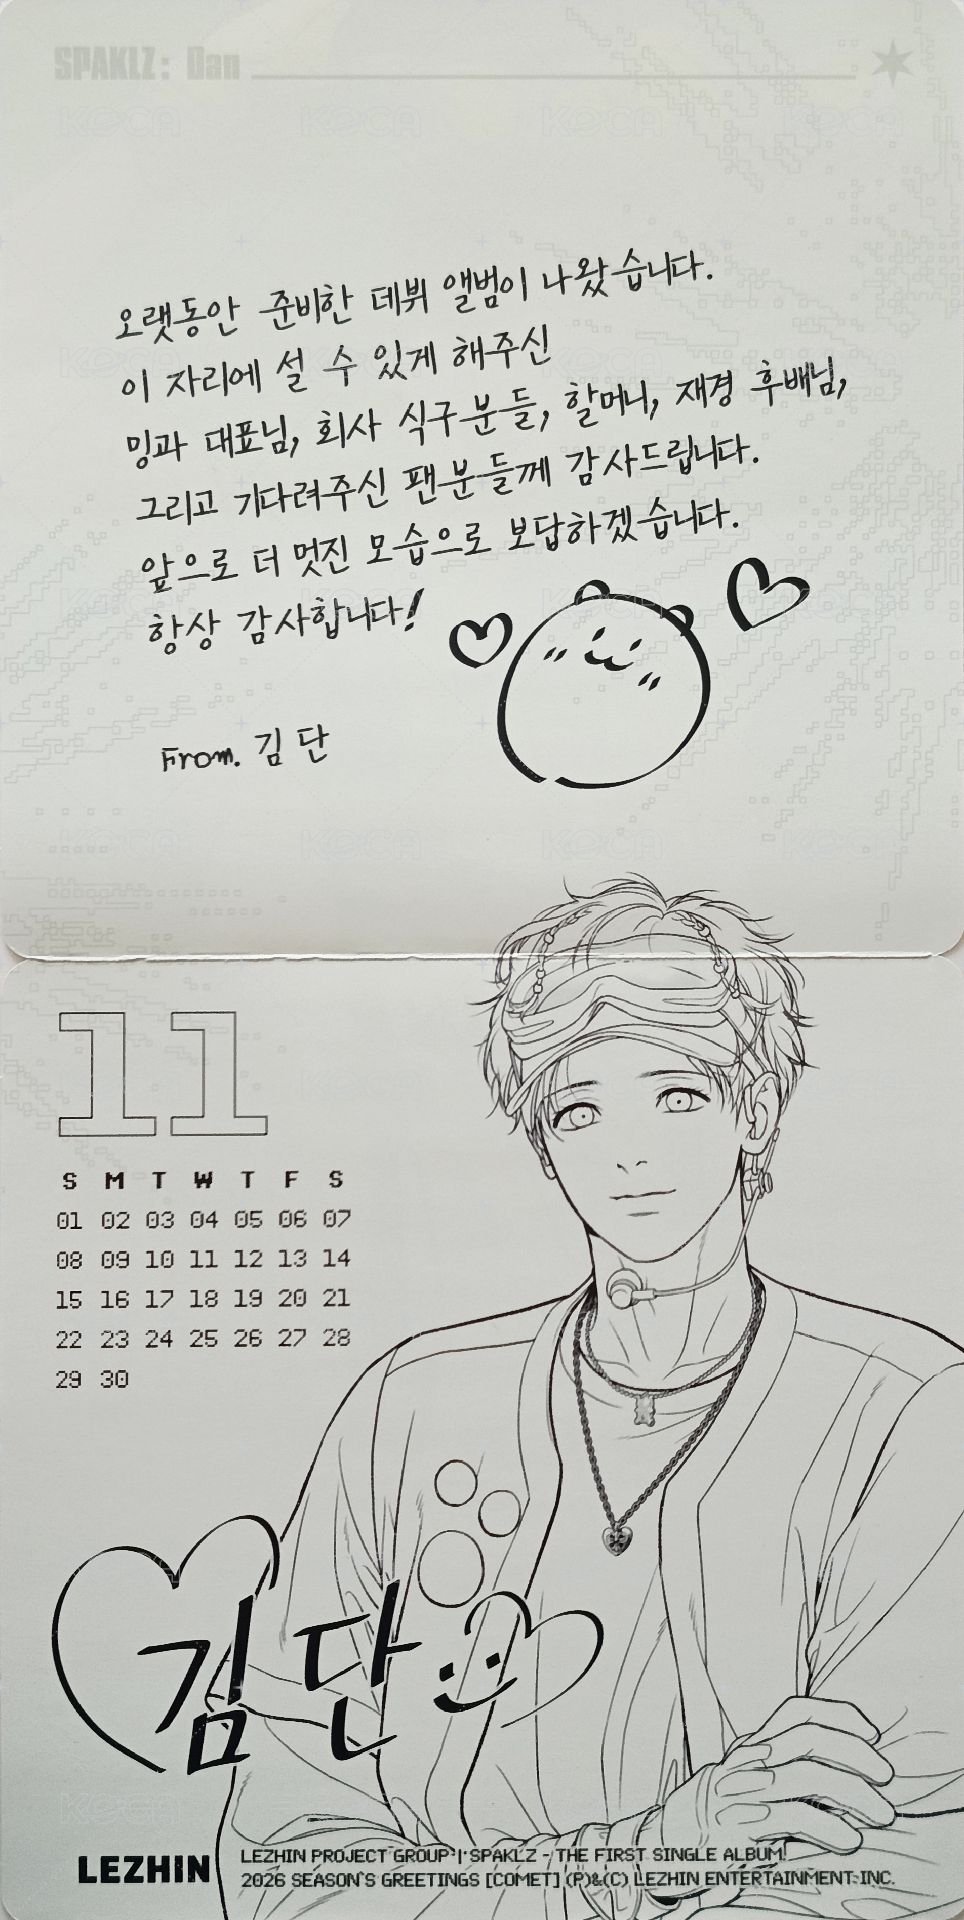 SPAKLZ: Dan
오랫동안 준비한 데뷔 앨범이 나왔습니다.
이 자리에 설 수 있게 해주신
밍과 대표님, 회사 식구분들, 할머니, 재경 후배님,
그리고 기다려주신 팬분들께 감사드립니다.
앞으로 더 멋진 모습으로 보답하겠습니다.
항상 감사합니다!
From. 김단
11
S M T W T F S
01 02 03 04 05 06 07
08 09 10 11 12 13 14
15 16 17 18 19 20 21
22 23 24 25 26 27 28
29 30
김단
LEZHIN
LEZHIN PROJECT GROUP | SPAKLZ - THE FIRST SINGLE ALBUM!
2026 SEASON'S GREETINGS [COMET] (P)&(C) LEZHIN ENTERTAINMENT. INC.